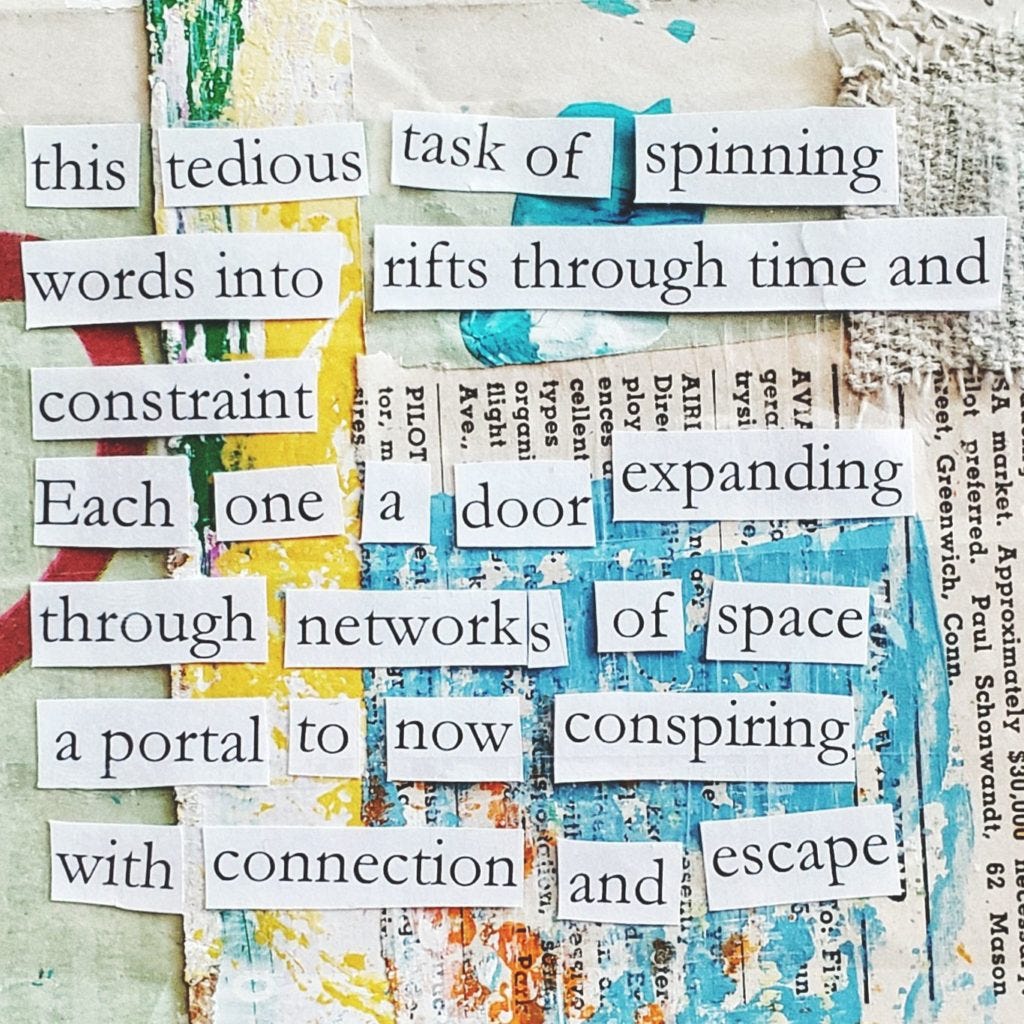 this tedious task of spinning
words into rifts through time and
constraint
Each one a door expanding
through networks of space
a portal to now conspiring
with connection and escape
PILOT
tor, m
Ave.,
flight
organi
types
cellent
ences
ploy
Direc
AIRI
trysi
gera
AVIA
SA market. Approximately $30,000
ilot preferred. Paul Schonwandt, 62 Mason
reet, Greenwich, Conn.